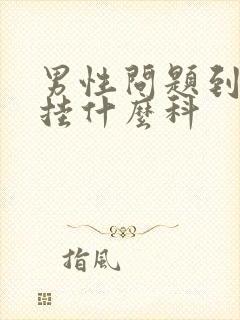 男性問題到
挂什麼科
指風